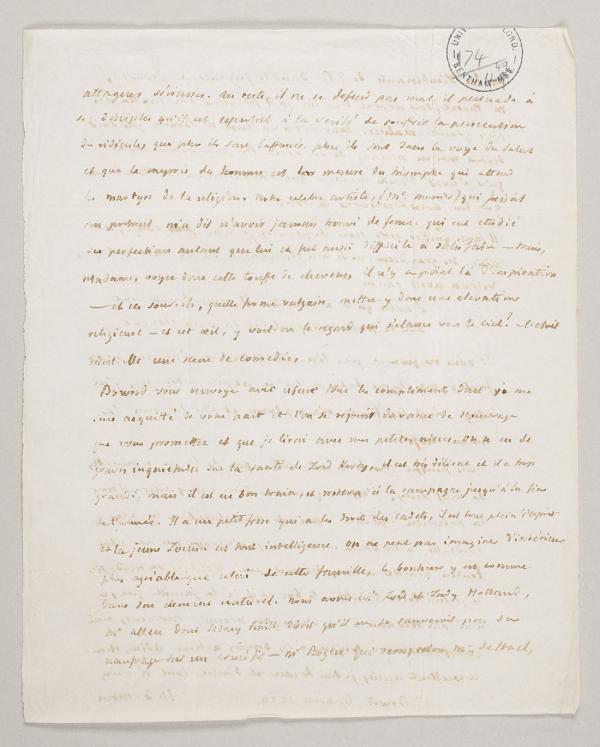 UNIV. LOND.
174
40
BENTHAM MSS.
attaques sérieuses. Au reste, il ne se defend pas mal, il persuade à
se disciples qu'il est essentiel à la verité de souffrir la persecution
du ridicule, que plus ils sont bafoués, plus ils sont dans la voye du salut
et que le mepris des hommes est leur mesure du triomphe qui attend
les martyrs de la religion. Notre celebre artiste, (Mr. ) qui faisoit
son portrait, m'a dit n'avoir jamais trouvé de femme qui eut etudié
ses perfections autant que lui et fut aussi difficile à satisfaire — Mais,
Madame, voyez donc cette touffe de cheveux, il n'y a point là d'inspiration
— et ces sourcils, quelle forme vulgaire, mettez y donc une elevation
religieuse — et cet œil, y voit-on le regard qui s'elance vers le ciel? — C'etoit
disoit-elle une scene de comedie.
Bowood vous renvoye avec usure tous les compliments dont je me
suis acquité de votre part et l'on se rejouit d'avance de l'ouvrage
que vous promettez et que je lirai avec mes petites nieces. On a eu de
graves inquietudes sur la santé de Lord Kerry, il est très délicat et il a trop
grandi, mais il est en bon train, et restera à la campagne jusqu'à la fin
de l'année. Il a un petit frere qui a les droits des cadets, il est tout plein d'esprit
et la jeune Louisa est tout intelligence. On ne peut pas imaginer d'interieur
plus agréable que celui de cette famille, le bonheur y est comme
dans son element naturel. Nous avons ici Lord et Lady Holland,
Mr Allen dont Sidney Smith disoit qu'il ne se sauveroit pas du
naufrage sur un crucifix — Mr Rogers qui de Stael,